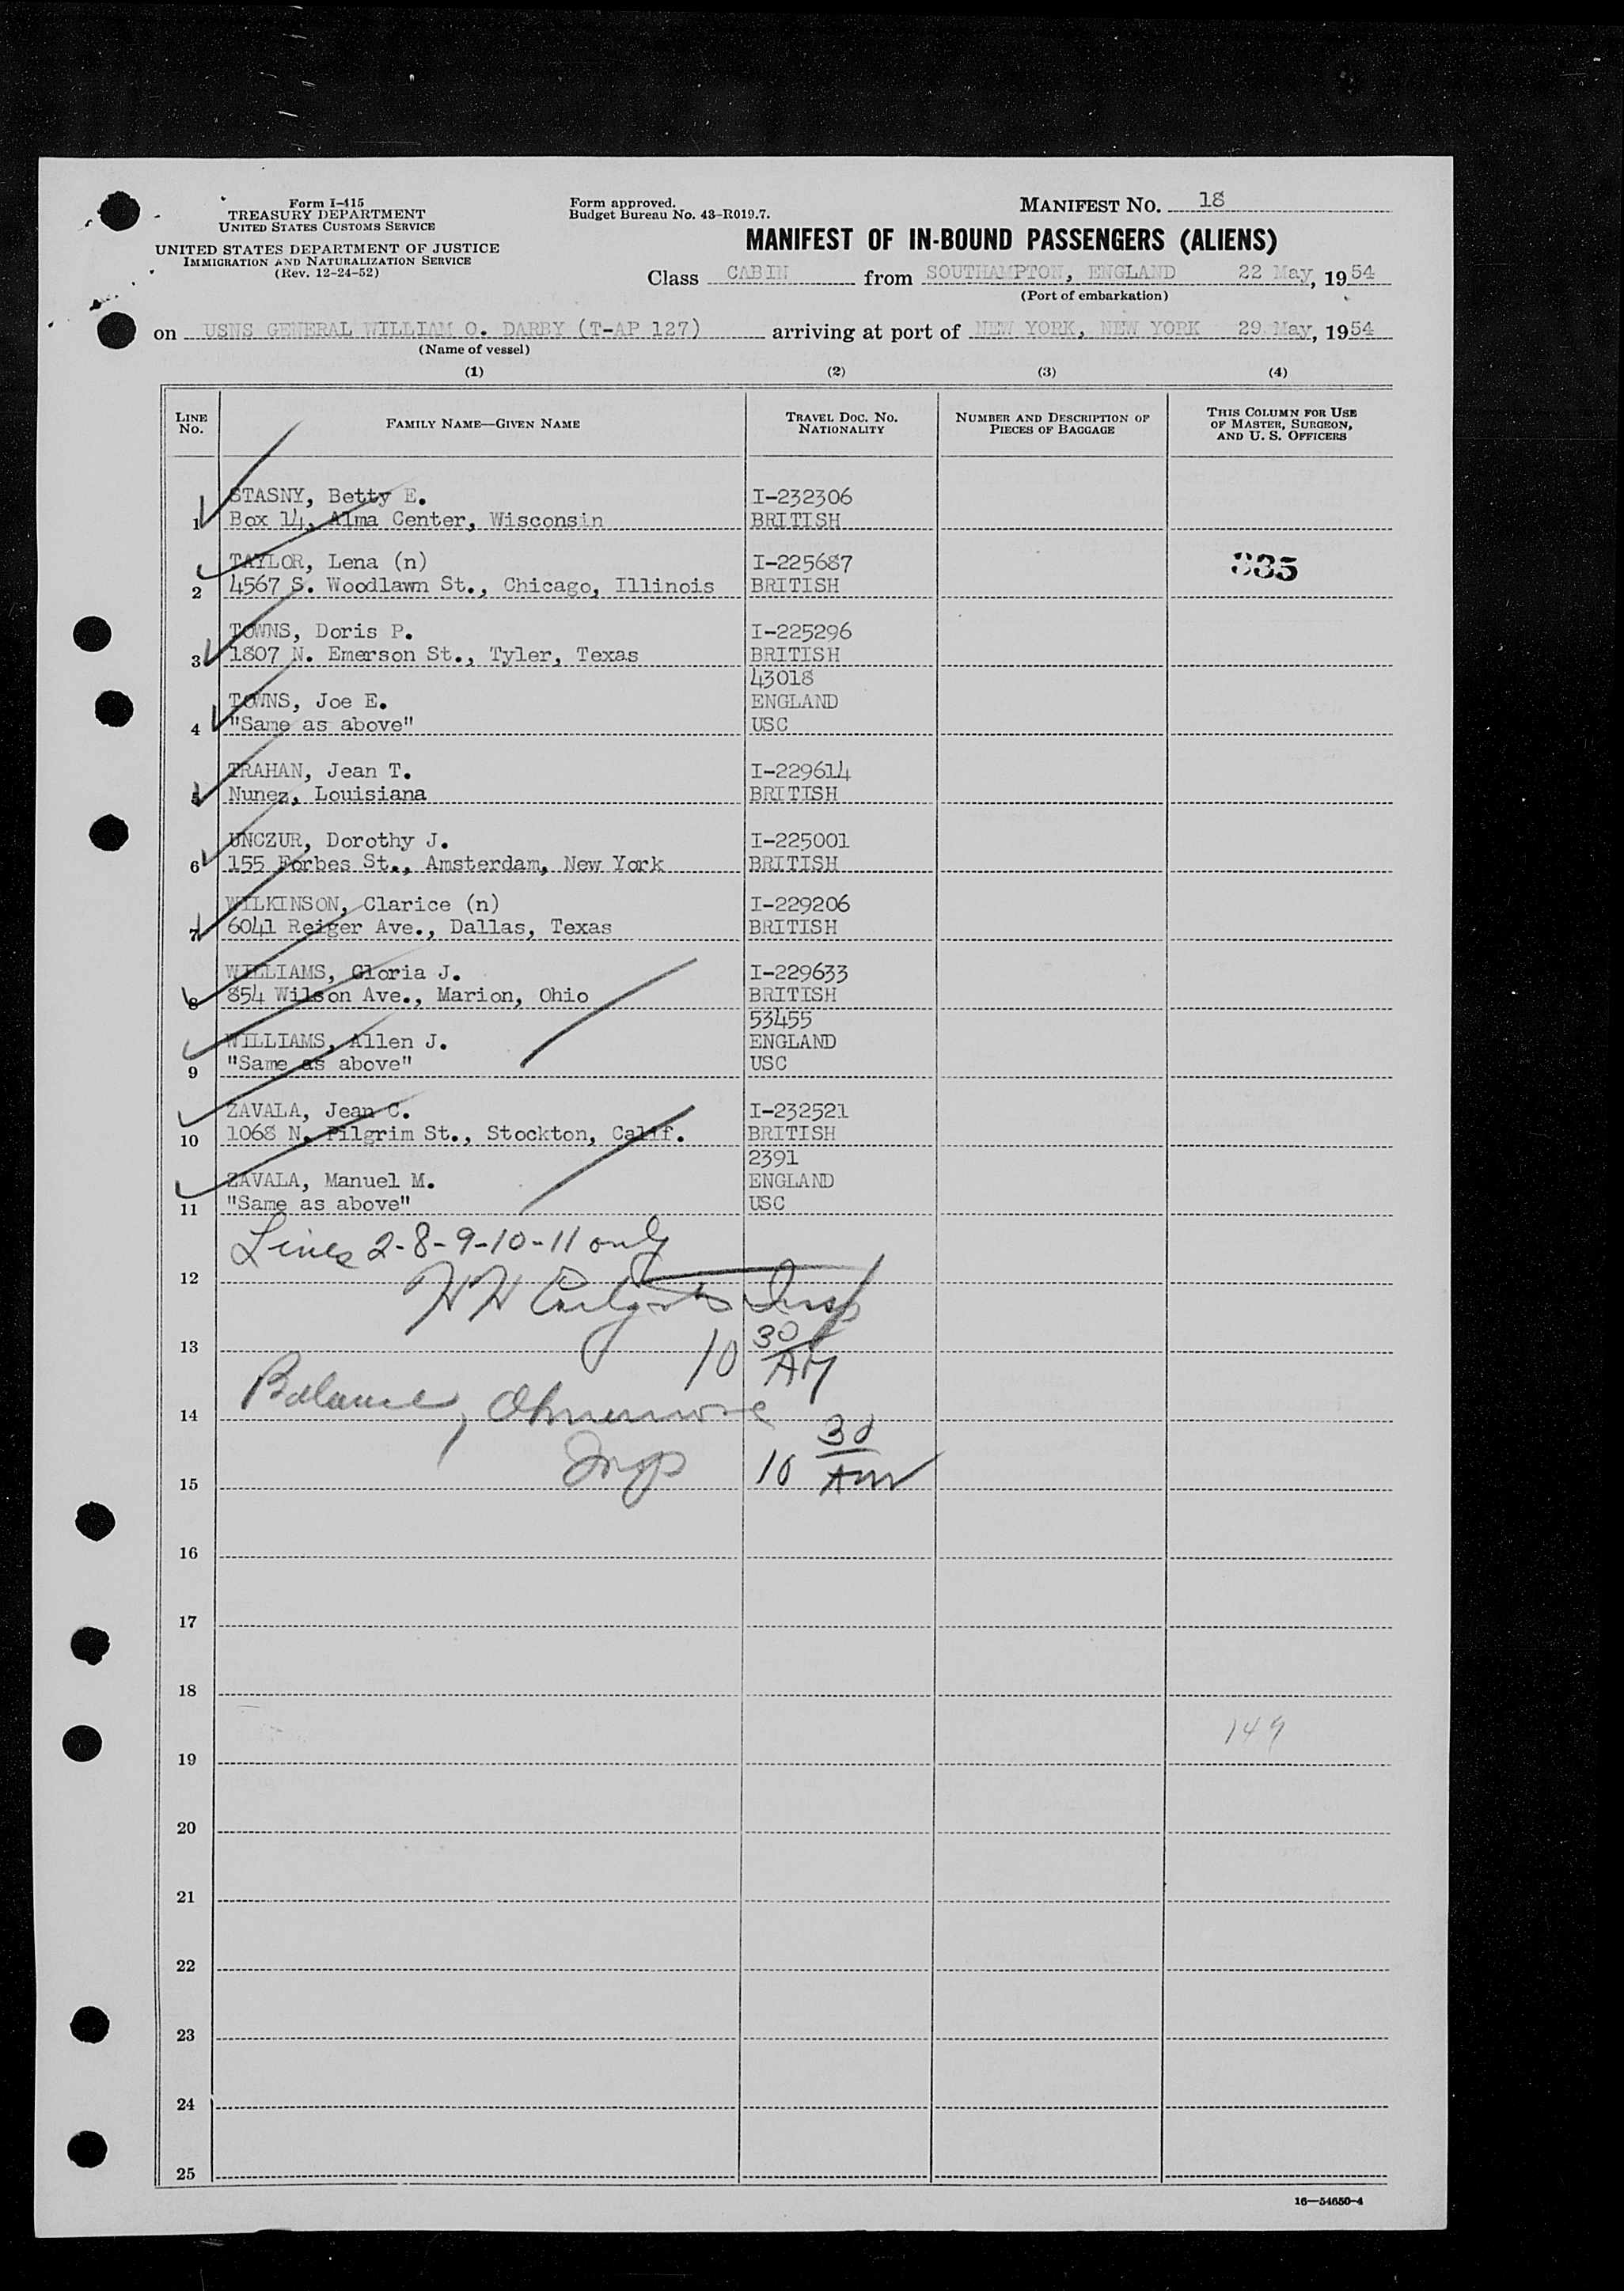 Form I-415
TREASURY DEPARTMENT
UNITED STATES CUSTOMS SERVICE
UNITED STATES DEPARTMENT OF JUSTICE
IMMIGRATION AND NATURALIZATION SERVICE
(Rev. 12-24-52)
Form approved.
Budget Bureau No. 43-R019.7.
MANIFEST NO. 18
MANIFEST OF IN-BOUND PASSENGERS (ALIENS)
Class CABIN from SOUTHAMPTON, ENGLAND 22 May, 1954
(Port of embarkation)
on USNS GENERAL WILLIAM O. DARBY (T-AP 127) arriving at port of NEW YORK, NEW YORK 29 May, 1954
(Name of vessel)
(1) (2) (3) (4)
LINE NO. FAMILY NAME—GIVEN NAME TRAVEL DOC. NO. NATIONALITY NUMBER AND DESCRIPTION OF PIECES OF BAGGAGE THIS COLUMN FOR USE OF MASTER, SURGEON, AND U. S. OFFICERS
STASNY, Betty E. I-232306
1 Box 14, Alma Center, Wisconsin BRITISH
TAYLOR, Lena (n) I-225687 335
2 4567 S. Woodlawn St., Chicago, Illinois BRITISH
TOWNS, Doris P. I-225296
3 1807 N. Emerson St., Tyler, Texas BRITISH
43018
TOWNS, Joe E. ENGLAND
4 "Same as above" USC
TRAHAN, Jean T. I-229614
5 Nunez, Louisiana BRITISH
UNCZUR, Dorothy J. I-225001
6 155 Forbes St., Amsterdam, New York BRITISH
WILKINSON, Clarice (n) I-229206
7 6041 Reiger Ave., Dallas, Texas BRITISH
WILLIAMS, Gloria J. I-229633
8 854 Wilson Ave., Marion, Ohio BRITISH
53455
WILLIAMS, Allen J. ENGLAND
9 "Same as above" USC
ZAVALA, Jean C. I-232521
10 1068 N. Pilgrim St., Stockton, Calif. BRITISH
2391
ZAVALA, Manuel M. ENGLAND
11 "Same as above" USC
Lines 2-8-9-10-11 only
12
H H Insp
13 10 30 AM
Balance,
14
Insp 10 30 AM
15
16
17
18
149
19
20
21
22
23
24
25
16—54650-4